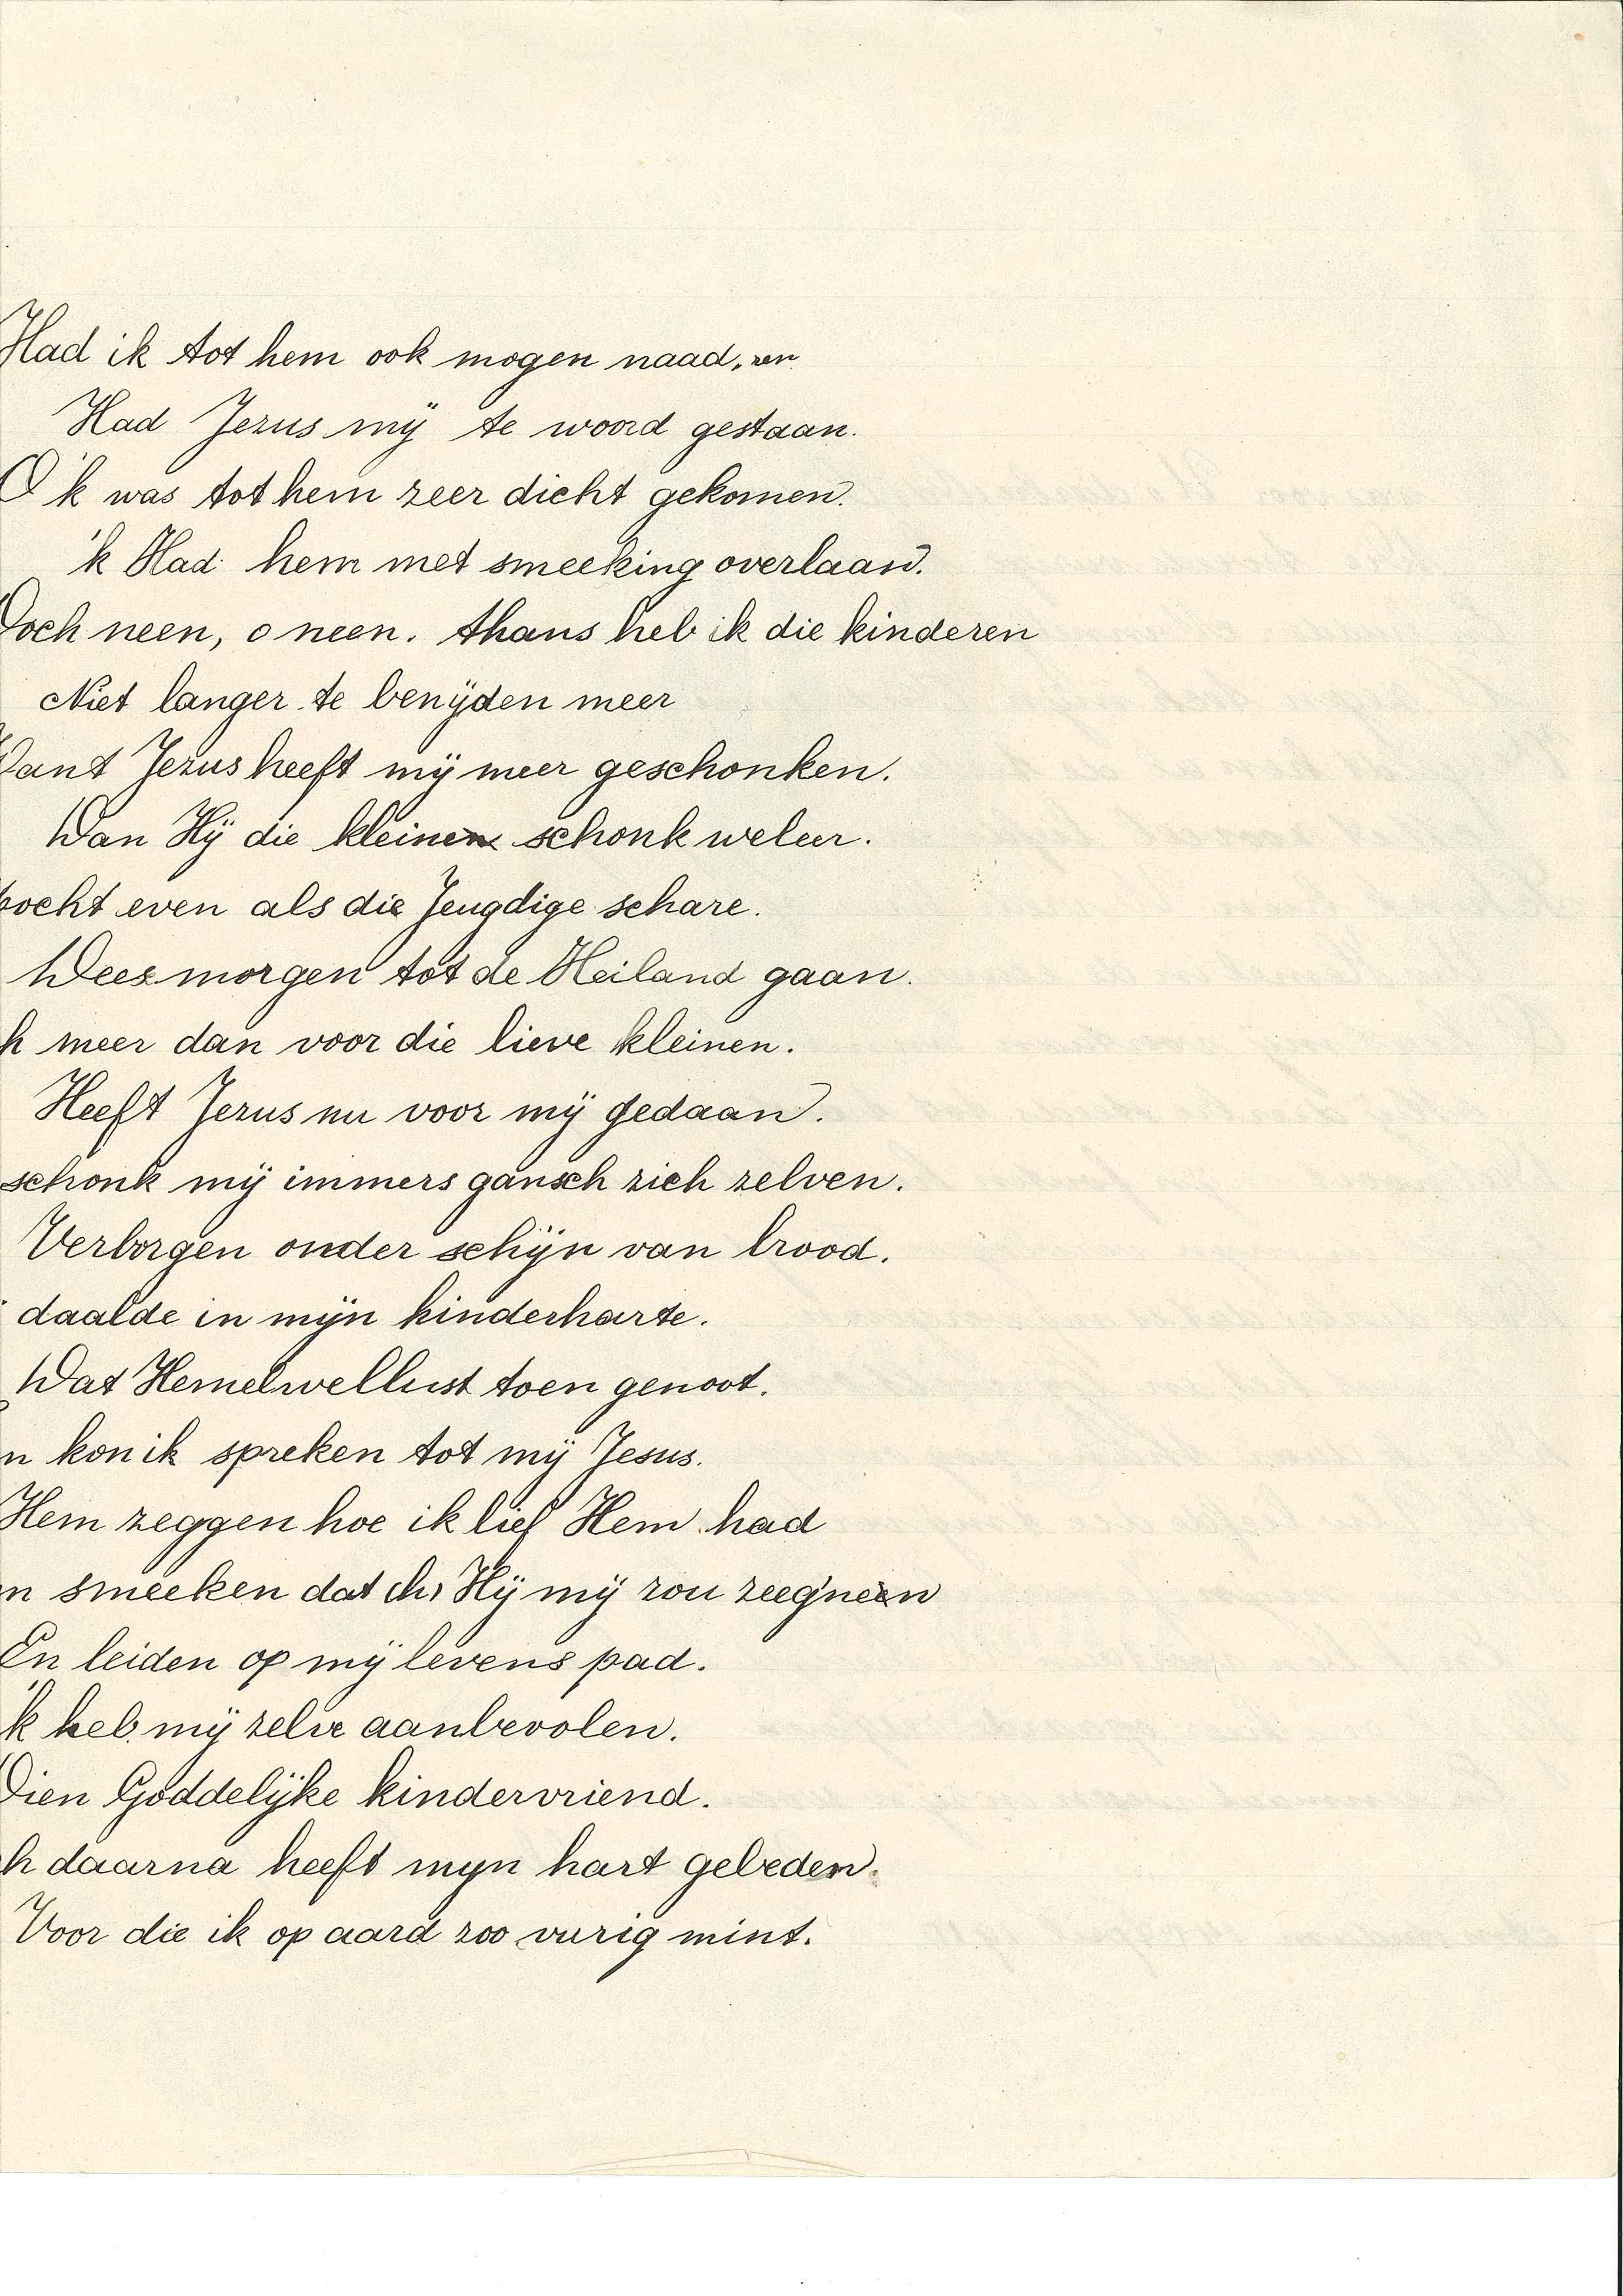 Had ik tot hem ook mogen naad,ren
Had Jezus mij te woord gestaan.
O 'k was tot hem zeer dicht gekomen.
'k Had hem met smeeking overlaan.
Doch neen, o neen. thans heb ik die kinderen
Niet langer te benijden meer
Want Jezus heeft mij meer geschonken.
Dan Hij die kleinen schonk weleer.
mocht even als die Jeugdige schare.
Dees morgen tot de Heiland gaan.
h meer dan voor die lieve kleinen.
Heeft Jezus nu voor mij gedaan.
schonk mij immers gansch zich zelven.
Verborgen onder schijn van brood.
daalde in mijn kinderharte.
Wat Hemelwellust toen genoot.
n kon ik spreken tot mij Jesus.
Hem zeggen hoe ik lief Hem had
n smeeken dat Hij mij zou zeeg'neen
En leiden op mij levens pad.
'k heb mij zelve aanbevolen.
Dien Goddelijke kindervriend.
h daarna heeft mijn hart gebeden.
Voor die ik op aard zoo vurig mint.